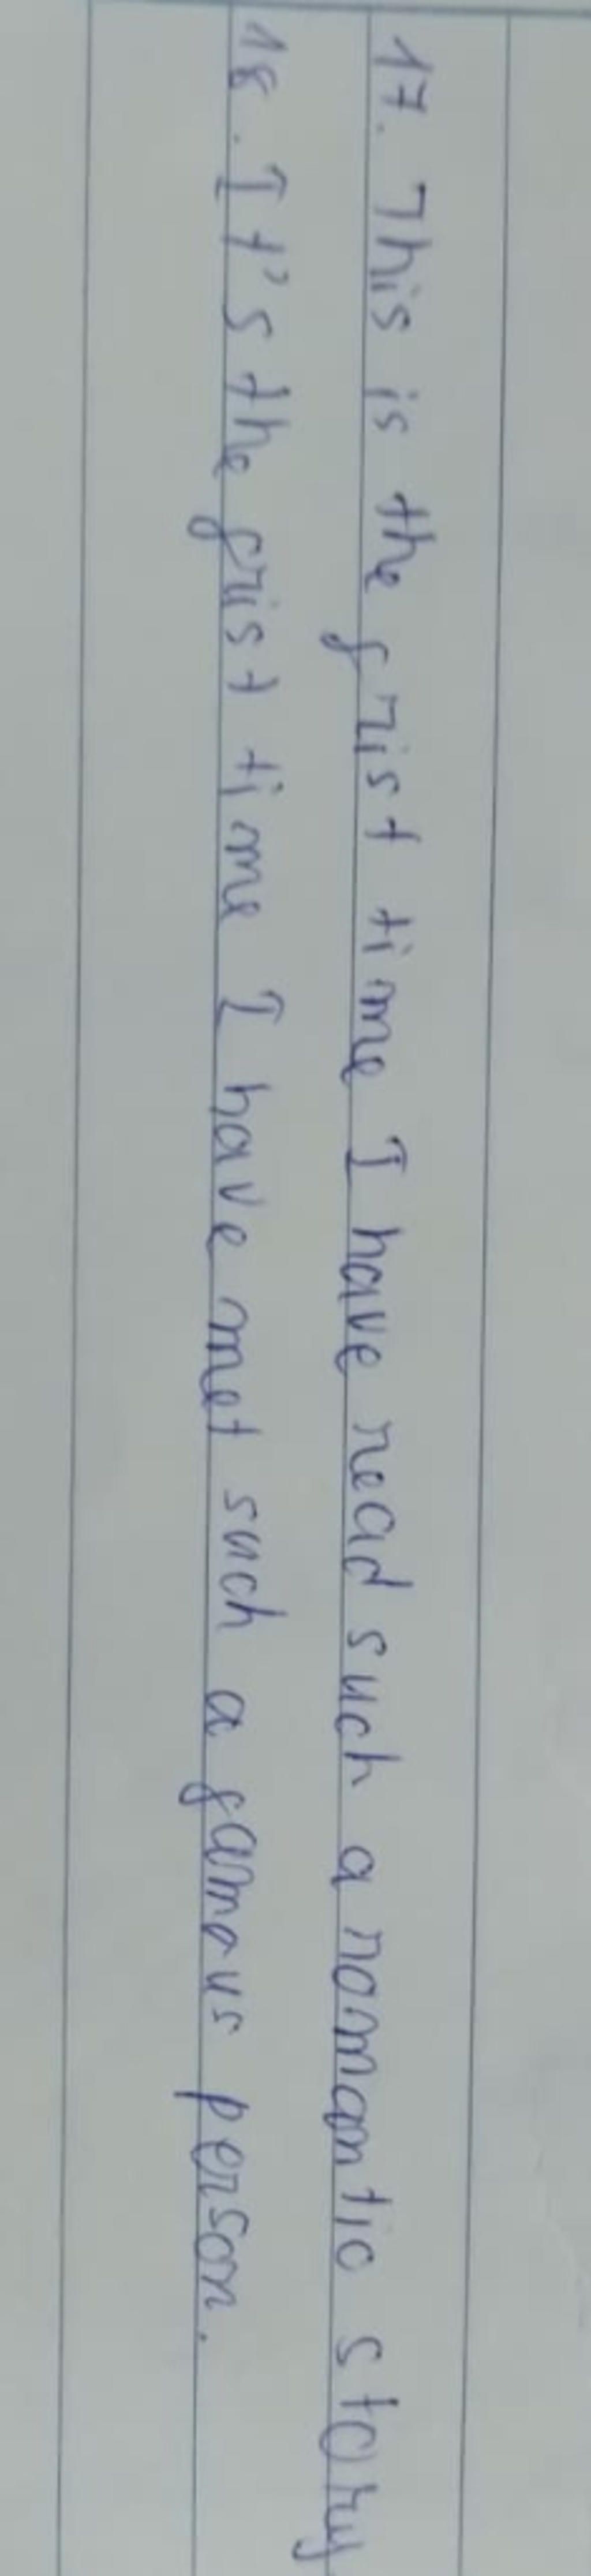 17. This is the frist time I have read such a romantic story
18. It's the frist time I have met such a famous person.